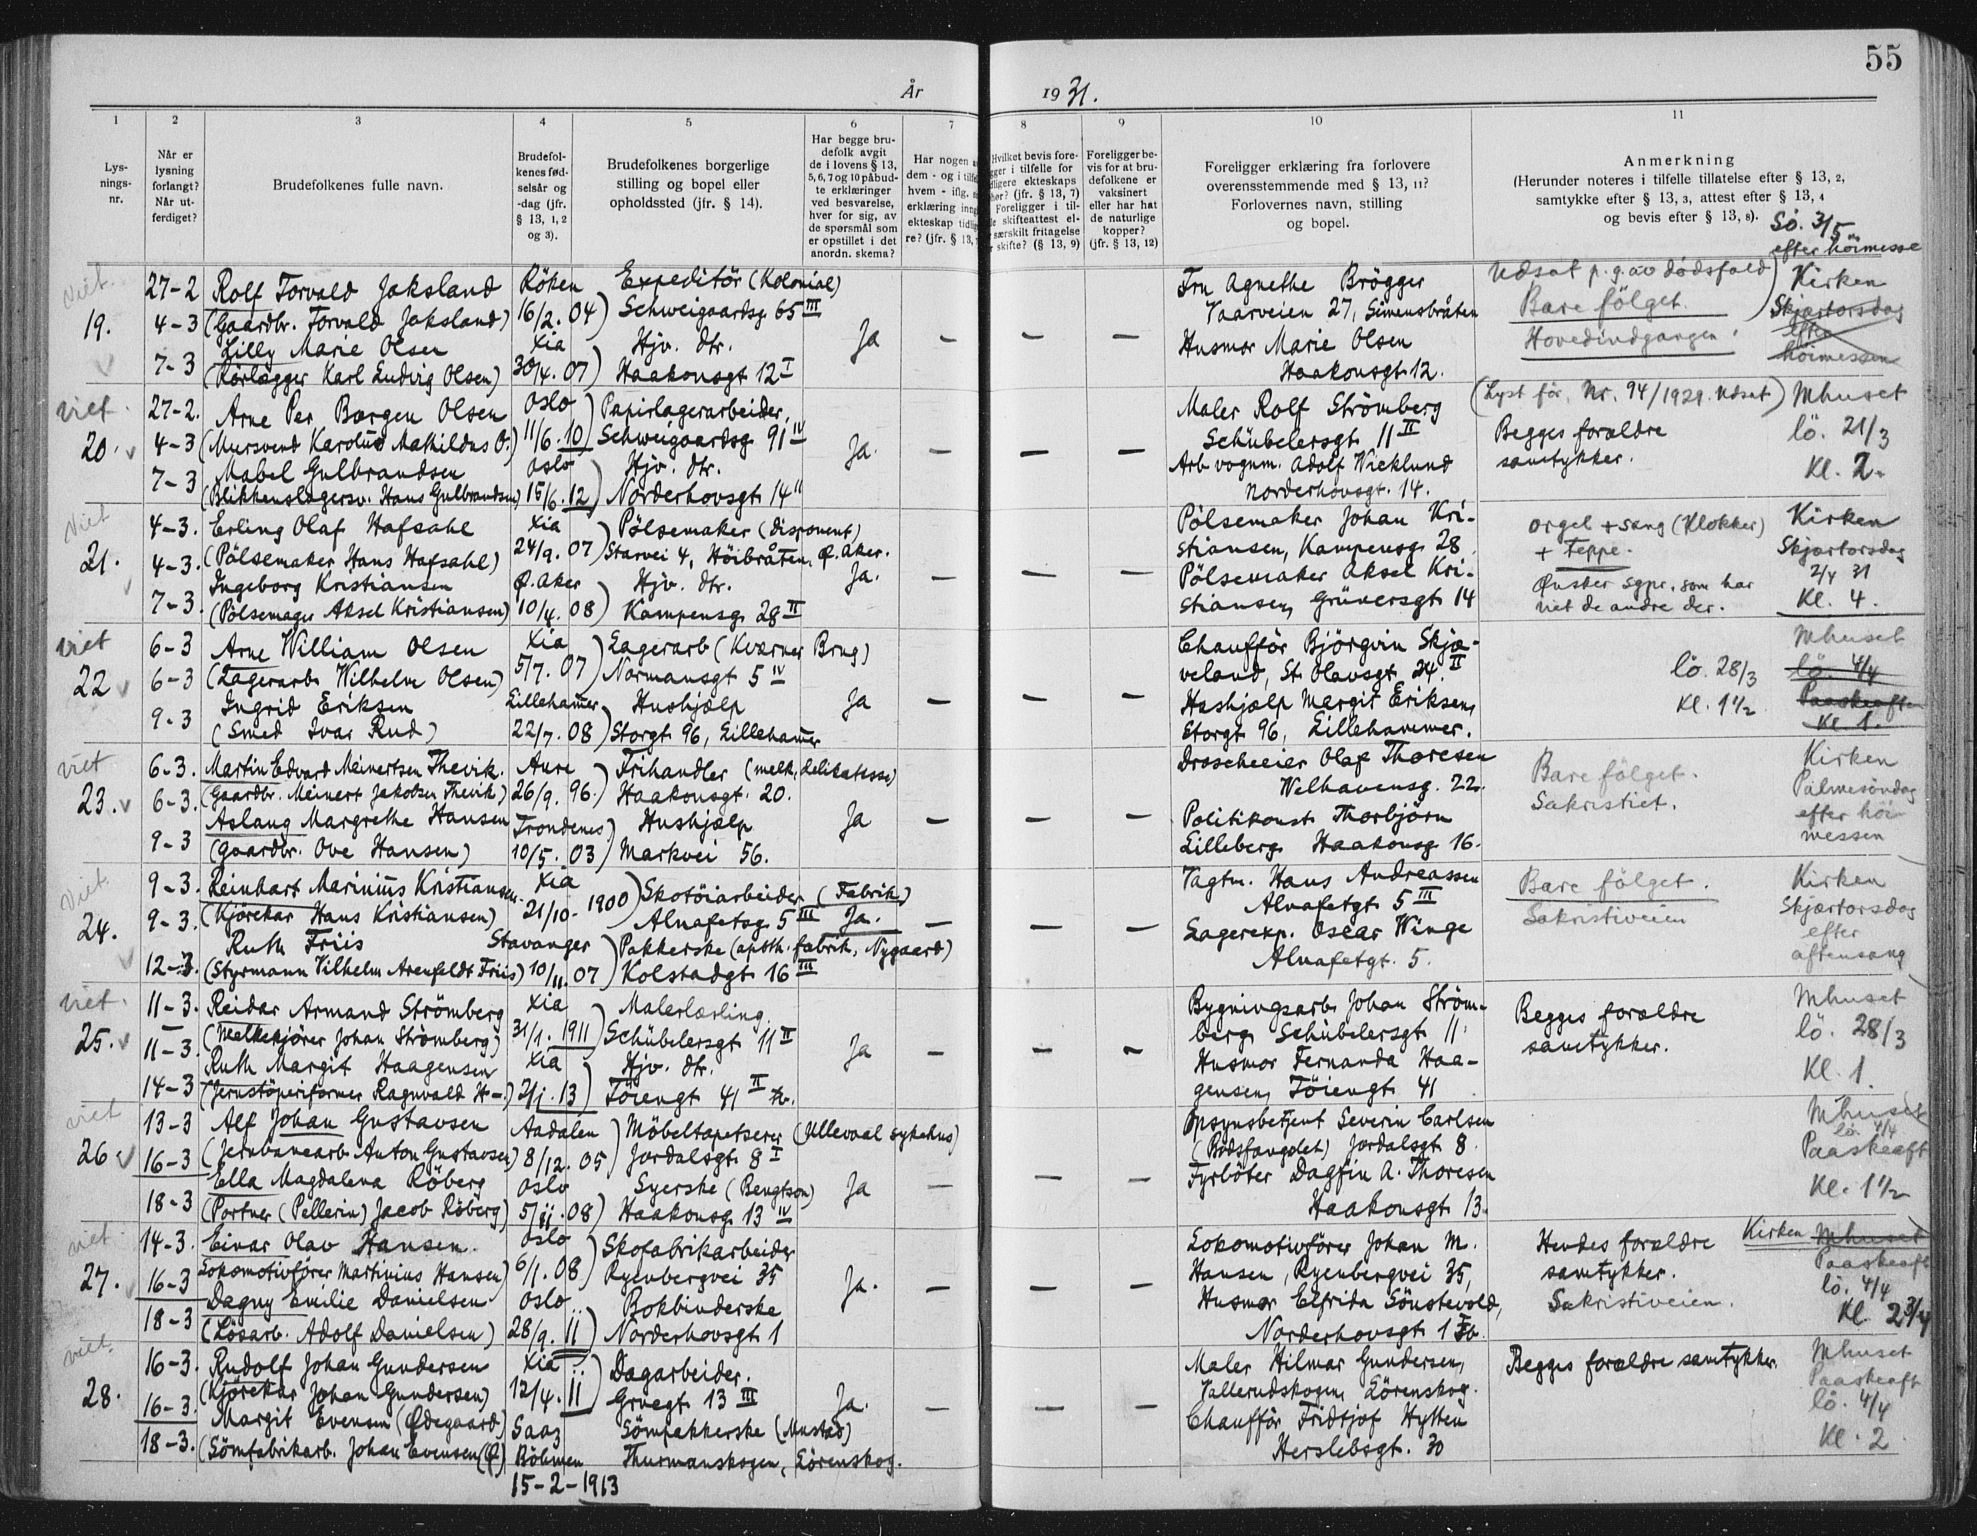 55
År 1931.
1 2 3 4 5 6 7 8 9 10 11
Lys-
nings-
nr.
Når er
lysning
forlangt?
Når ut-
ferdiget?
Brudefolkenes fulle navn.
Brudefol-
kenes fød-
selsår og
-dag (jfr.
§ 13, 1, 2
og 3).
Brudefolkenes borgerlige
stilling og bopel eller
opholdssted (jfr. § 14).
Har begge bru-
defolk avgit
de i lovens § 13,
5, 6, 7 og 10 påbud-
te erklæringer
ved besvarelse,
hver for sig, av
de spørsmål som
er opstillet i det
anordn. skema?
Har nogen
dem - og i
hvem - iflg.
erklæring
ekteskap
re? (jfr. § 13,
Hvilket bevis fore-
i tilfelle for
ekteskaps
(jfr. § 13, 7)
Foreligger i til-
skifteattest el-
særskilt fritagelse
skifte? (§ 13, 9)
Foreligger be-
vis for at bru-
defolkene er
vaksinert
eller har hat
de naturlige
kopper?
(jfr. § 13, 12)
Foreligger erklæring fra forlovere
overensstemmende med § 13, 11?
Forlovernes navn, stilling
og bopel.
Anmerkning
(Herunder noteres i tilfelle tillatelse efter § 13, 2,
samtykke efter § 13, 3, attest efter § 13, 4
og bevis efter § 13, 8).
Sö. 3/5
efter höimesse
viet.
19.
27-2
4-3
7-3
Rolf Torvald Joksland
(Gaardbr. Torvald Joksland)
Lilly Marie Olsen
(Rörlægger Karl Ludvig Olsen)
Röken
16/2. 04)
Xia
30/4. 07)
Expeditör (Kolonial)
Schweigaardsg. 65 III
Hjv. dtr.
Haakonsgt 12 I
Ja - - -
Fru Agnethe Brögger
Vaarveien 27, Simensbråten
Husmor Marie Olsen
Haakonsgt. 12.
Udsat p.g.av dødsfald)
Bare fölget.
Hovedindgangen.
Kirken
Skjærtorsdag
efter
höimessen
viet.
20.
27-2.
4-3
7-3
Arne Per Borgen Olsen
(Mursvend Karolius Mathildus O.)
Mabel Gulbrandsen
(Blikkenslagersv. Hans Gulbrandsen)
Oslo
11/6. 10)
Oslo
15/6. 12)
Papirlagerarbeider,
Schweigaardsg 91 IV
Hjv. dtr.
Norderhovsgt. 14 II
Ja. - - -
Maler Rolf Strömberg
Schübelersgt. 11 II
Arb. vognm. Adolf Wicklund
Norderhovsgt. 14.
(Lyst för. Nr. 94/1929. Udsat)
Begges forældre
samtykker.
Mhuset
lö. 21/3
Kl. 2.
viet
21.
4-3.
4-3.
7-3.
Erling Olaf Hafsahl
(Pölsemaker Hans Hafsahl)
Ingeborg Kristiansen
(Pölsemager Aksel Kristiansen)
Xia
24/9. 07)
Ø. Aker
10/4. 08)
Pölsemaker (disponent)
Starvei 4, Höibråten, Ø. Aker.
Hjv. dtr.
Kampensg. 28 II
Ja. - - -
Pölsemaker Johan Kri-
stiansen, Kampensg. 28
Pölsemaker Aksel Kri-
stiansen, Grüversgt. 14
orgel + sang (Klokker)
+ teppe.
Ønsker sgpr. som har
viet de andre der.
Kirken
Skjærtorsdag
2/4 31
Kl. 4.
viet
22
6-3
6-3
9-3
Arne William Olsen
(Lagerarb. Wilhelm Olsen)
Ingrid Eriksen
(Smed Ivar Rud)
Xia
5/7. 07)
Lillehamer
22/7. 08)
Lagerarb (Kværner Brug)
Normansgt 5 IV
Hushjælp
Storgt 96, Lillehamer
Ja - - -
Chaufför Björgvin Skjæ-
veland, St. Olavsgt. 24. II
Hushjælp Margit Eriksen,
Storgt 96, Lillehammer.
lö. 28/3
Kl. 1 1/2
Mhuset
lö. 4/4
Paaskeaften
Kl. 1
viet
23.
6-3.
6-3.
9-3
Martin Edvard Meinertsen Thevik.
(Gaardbr. Meinert Jakobsen Thevik)
Aslaug Margrethe Hansen
(Gaardbr. Ove Hansen)
Aure
26/9. 96.)
Trondenes
10/5. 03)
Frihandler (melk, delikatesse)
Haakonsgt. 20.
Hushjælp
Markvei 56.
Ja - - -
Droscheeier Olaf Thoresen
Welhavensg. 22.
Politikonst. Thorbjörn
Lilleberg Haakonsg. 16.
Bare fölget.
Sakristiet.
Kirken
Palmesöndag
efter höi-
messen
Viet
24.
9-3.
9-3.
12-3.
Reinhart Marinius Kristiansen.
(Kjörekar Hans Kristiansen)
Ruth Friis
(Styrmann Vilhelm Arenfeldt Friis)
Xia
21/10 - 1900)
Stavanger
10/11. 07)
Skotöiarbeider (Fabrik)
Alnafetgt. 5 III
Pakkerske (apoth. fabrik, Nygaard)
Kolstadgt 16 III
Ja. - - -
Vagtm. Hans Andreassen
Alnafetgt 5 III
Lagerexp. Oscar Winge
Alnafetgt. 5.
Bare fölget.
Sakristiveien
Kirken
Skjærtorsdag
efter
aftensang
viet.
25.
11-3.
11-3.
14-3
Reidar Armand Strömberg
(Melkekjörer Johan Strömberg)
Ruth Margit Haagensen
(Jernstöperiformer Ragnvald H-.)
Xia
31/1. 1911)
Xia
2/1. 13)
Malerlærling
Schübelersgt 11 II
Hjv. dtr.
Töiengt 41 II
Ja - - -
Bygningsarb. Johan Ström-
berg Schübelersgt 11.
Husmor Fernanda Haa-
gensen, Töiengt 41
Begges forældre
samtykker.
Mhuset
lö. 28/3
Kl. 1.
viet
26.
13-3
16-3
18-3
Alf Johan Gustavsen
(Jernbanearb. Anton Gustavsen)
Ella Magdalena Röberg
(Portner (Pellerin) Jacob Röberg)
Aadalen
8/12. 05)
Oslo
5/11. 08)
Möbeltapetserer (Ullevaal sykehus)
Jordalsgt. 8 I
Syerske (Bengtson)
Haakonsg. 13 IV
Ja - - -
Opsynsbetjent Severin Carlsen
(Bodsfængslet) Jordalsgt 8.
Fyrböter Dagfin A. Thoresen
Haakonsgt. 13.
Mhuset
lö. 4/4
Paaskeaft
Kl. 1 1/2
viet.
27.
14-3.
16-3
18-3
Einar Olav Hansen.
Lokomotivförer Martinius Hansen)
Dagny Emilie Danielsen
(Lösarb. Adolf Danielsen)
Oslo
6/1. 08)
Oslo
28/9. 11)
Skofabrikarbeider
Ryenbergvei 35
Bokbinderske
Norderhovsgt 1
Ja. - - -
Lokomotivförer Johan M.
Hansen, Ryenbergvei 35,
Husmor Elfrida Sönstevold,
Norderhovsgt. 1
Hendes forældre
samtykker.
Sakristiveien.
Kirken Mhuset
Paaskeaft
lö. 4/4
Kl. 2 3/4
viet.
28.
16-3.
16-3.
18-3.
Rudolf Johan Gundersen
(Kjörekar Johan Gundersen)
Margit Evensen (Ødegaard)
(Sömfabrikarb. Johan Evensen (Ø)
Xia
12/4. 11)
Saaz
Böhmen
15-2-1913
Dagarbeider.
Gruegt 13 III
Sömpakkerske (Mustad)
Thurmanskogen, Lörenskog.
Ja. - - -
Maler Hilmar Gundersen,
Vallerudskogen, Lörenskog.
Chaufför Fridtjof Hytten
Herslebsgt. 30
Begges forældre samtykker.
Mhuset
Paaskeaft
lö. 4/4
Kl. 2